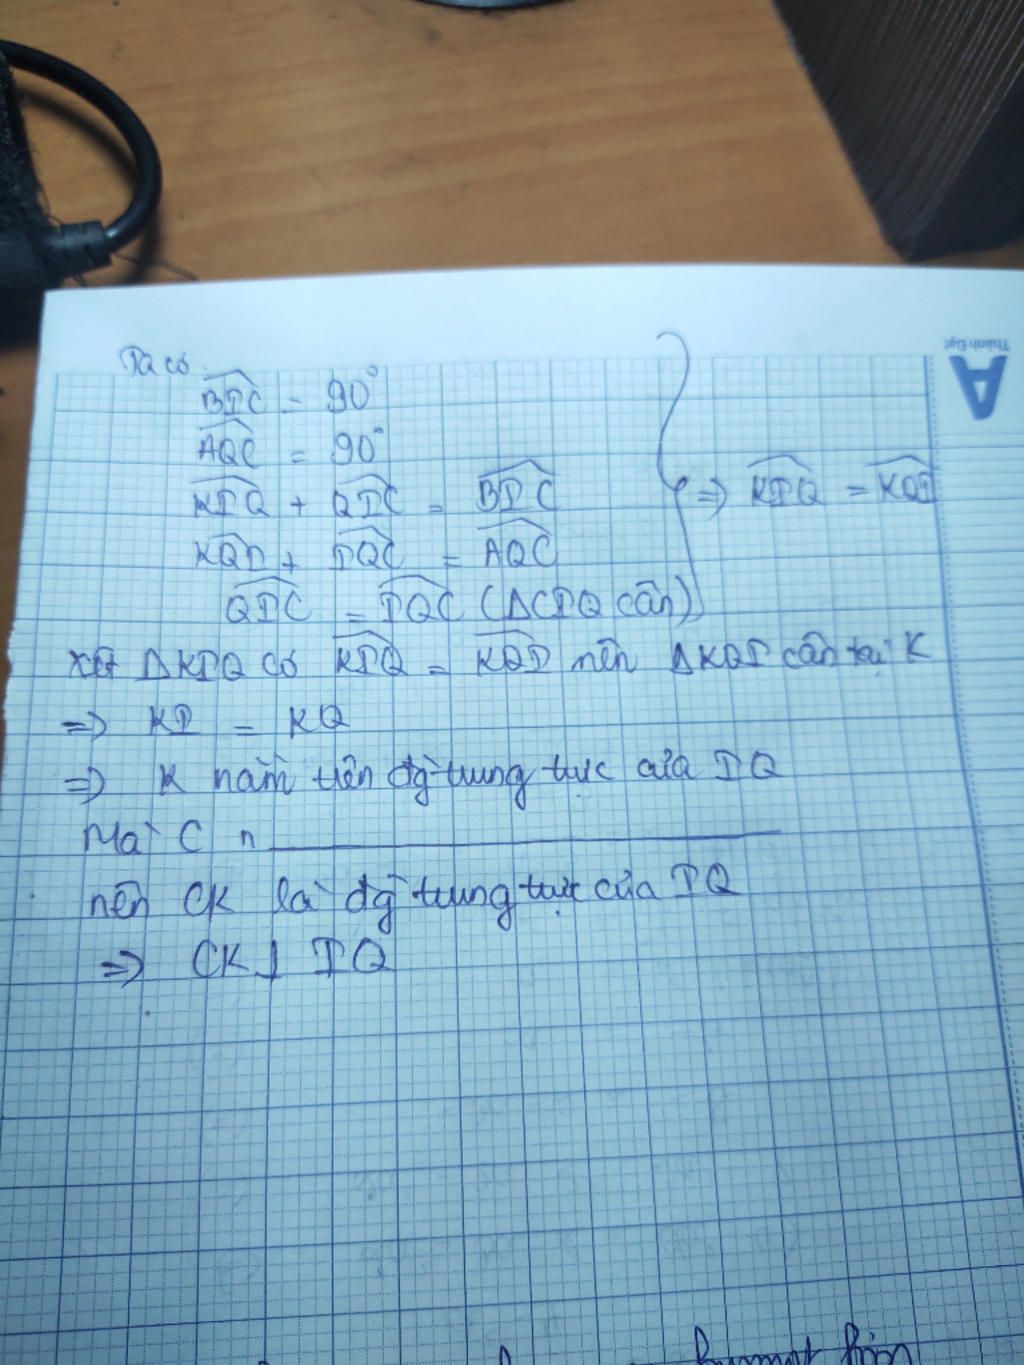 Ta có
BIC = 90°
AQC = 90°
KIQ + QIC = BIC
KQI + IQC = AQC
QIC = IQC (ΔCIQ cân)
⇒ KIQ = KQI
Xét ΔKIQ có KIQ = KQI nên ΔKQI cân tại K
⇒ KI = KQ
⇒ K nằm trên đg trung trực của IQ
Mà C n
nên CK là đg trung trực của IQ
⇒ CK ⊥ IQ
Thành Đạt
A